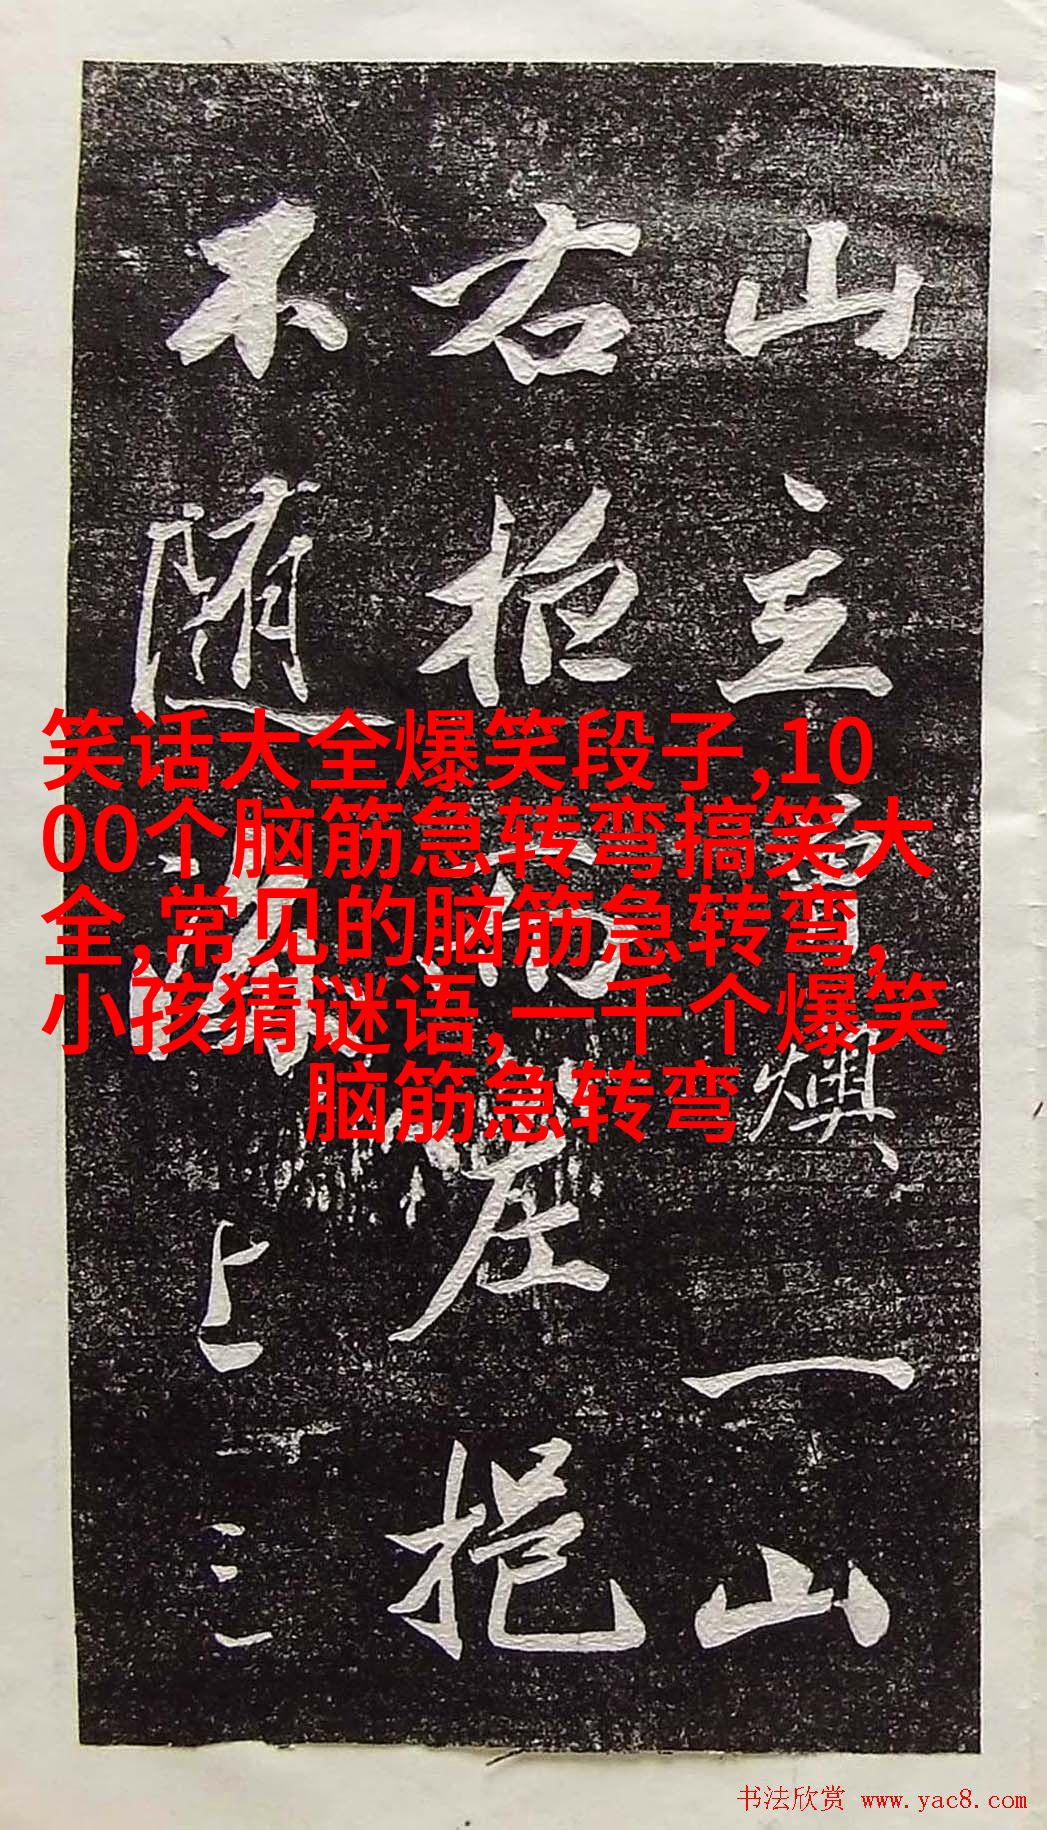 山主燠、一山
右拒而左挹
不随上
笑话大全爆笑段子,10
00个脑筋急转弯搞笑大
全,常见的脑筋急转弯,
小孩猜谜语,一千个爆笑
脑筋急转弯
书法欣赏 www.yac8.com